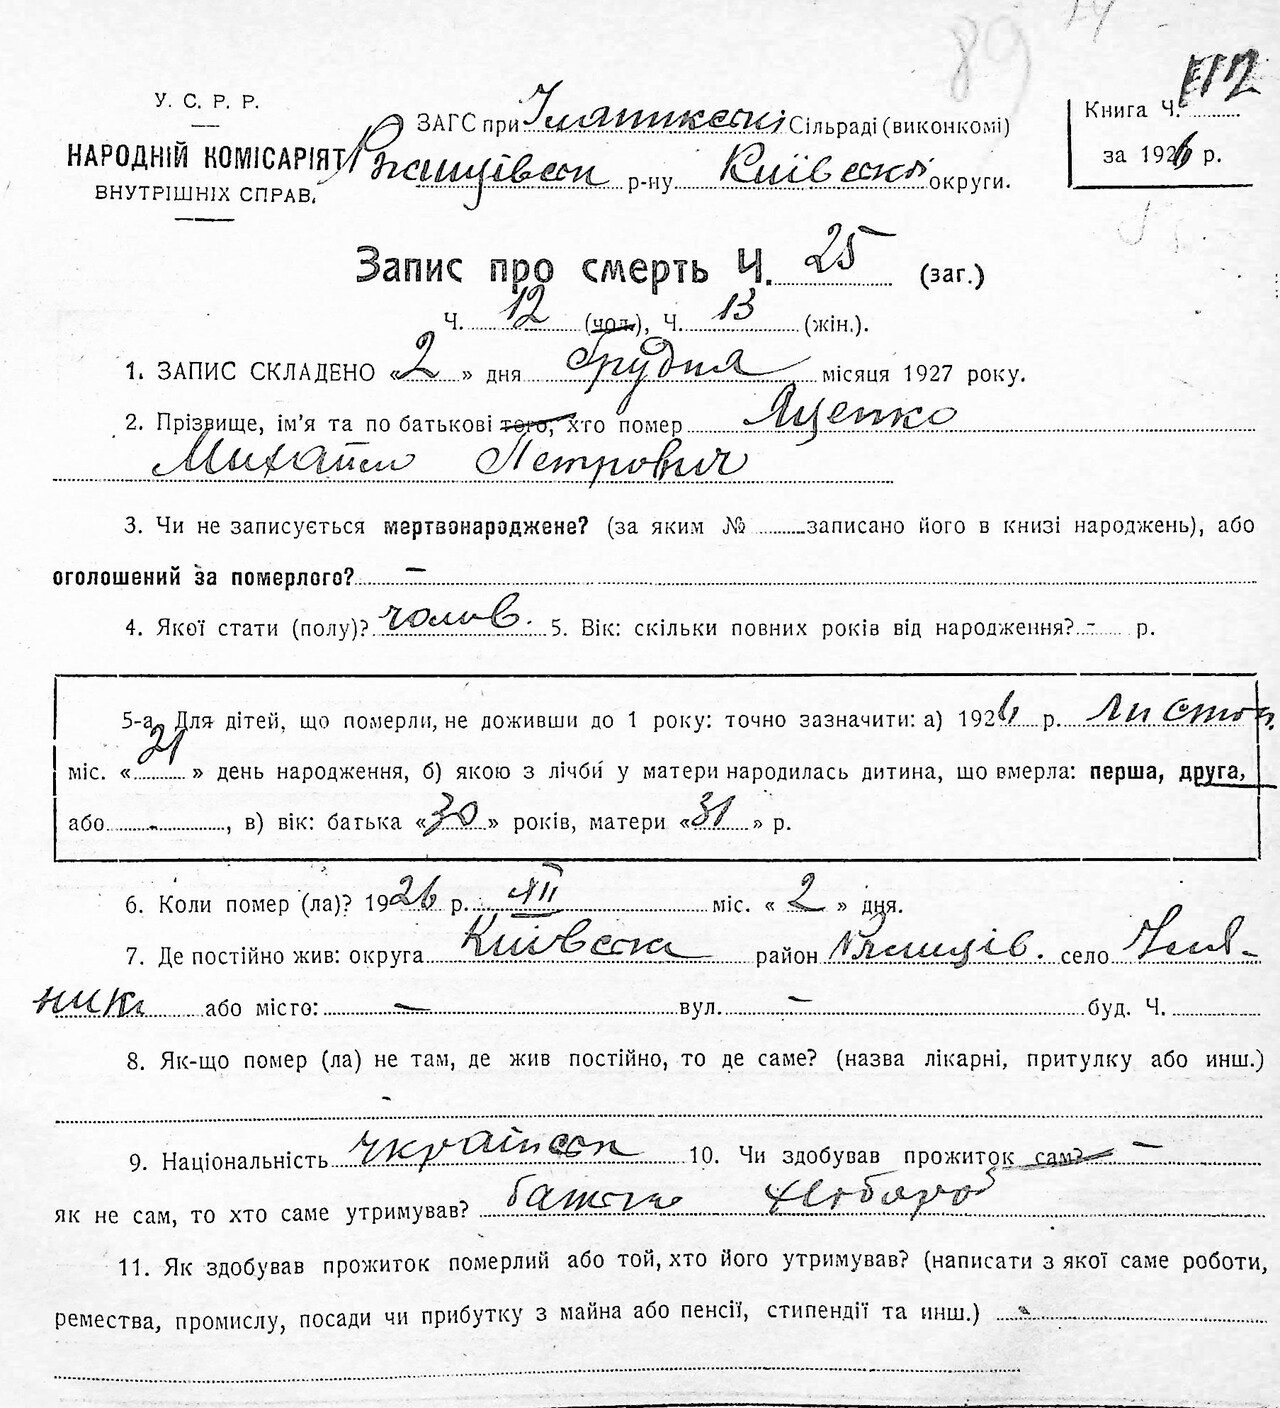 89
У. С. Р. Р.
НАРОДНІЙ КОМІСАРІЯТ
ВНУТРІШНІХ СПРАВ.
ЗАГС при Сільраді (виконкомі)
Ржищівськ р-ну Київської округи.
Книга Ч.
за 1926 р.
Запис про смерть Ч. 25 (заг.)
Ч. 12 (чол.), Ч. 13 (жін.).
1. ЗАПИС СКЛАДЕНО «2» дня Грудня місяця 1927 року.
2. Прізвище, ім'я та по батькові того, хто помер Яценко
Михайло Петрович
3. Чи не записується мертвонароджене? (за яким № записано його в книзі народжень), або
оголошений за померлого? –
4. Якої стати (полу)? чолов. 5. Вік: скільки повних років від народження? - р.
5-а. Для дітей, що померли, не доживши до 1 року: точно зазначити: а) 1926 р. Листоп.
міс. «21» день народження, б) якою з лічби у матери народилась дитина, що вмерла: перша, друга,
або - , в) вік: батька «30» років, матери «31» р.
6. Коли помер (ла)? 1926 р. XII міс. «2» дня.
7. Де постійно жив: округа Київська район Ржищів. село Уля-
ники або місто: – вул. – буд. Ч.
8. Як-що помер (ла) не там, де жив постійно, то де саме? (назва лікарні, притулку або инш.)
-
9. Національність українськ 10. Чи здобував прожиток сам? –
як не сам, то хто саме утримував? батько хлібороб
11. Як здобував прожиток померлий або той, хто його утримував? (написати з якої саме роботи,
ремества, промислу, посади чи прибутку з майна або пенсії, стипендії та инш.)